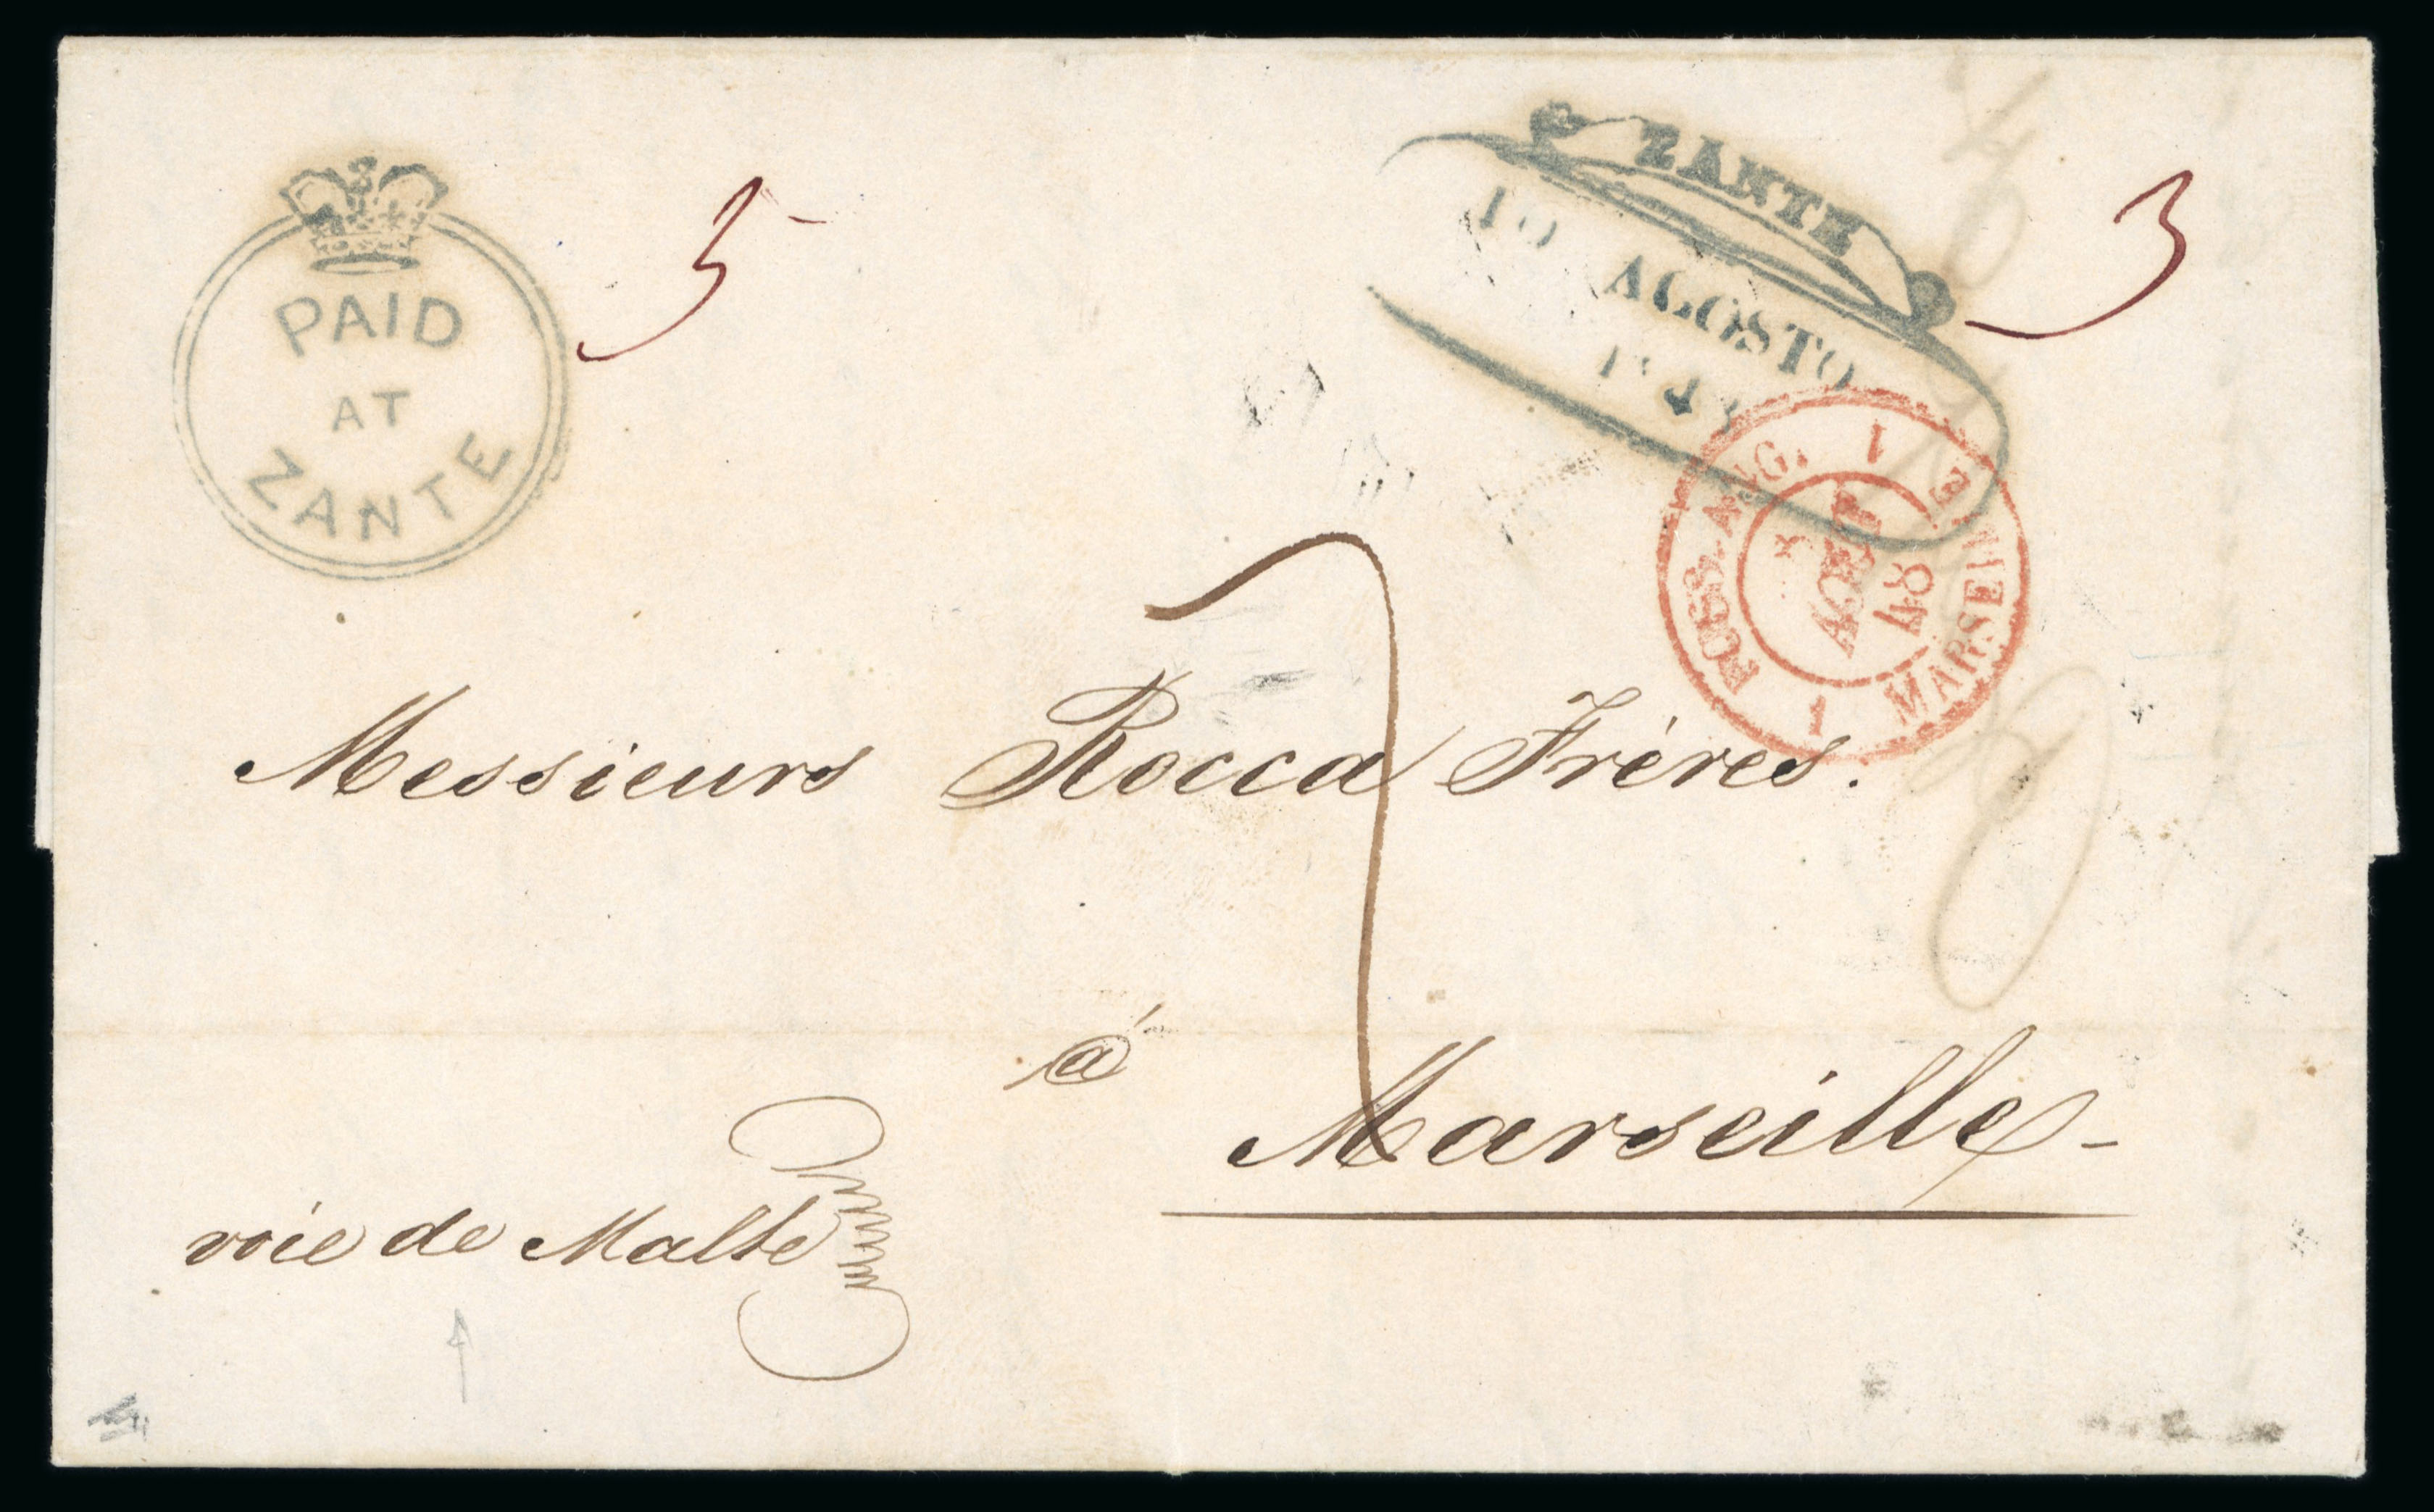 PAID
AT
ZANTE
5
ZANTE
10 AGOSTO
3
POSS. ANG. 1
AOUT
48
MARSEILLE 1
7
Messieurs Rocca Frères.
à
Marseille
voie de Malte